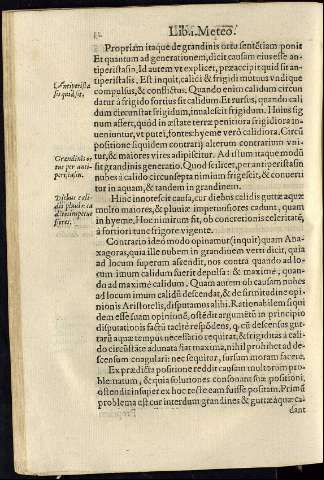 Lib. i. Meteo.
Propriam itaque de grandinis ortu sentẽtiam ponit
Et quantum ad generationem, dicit causam eius esse an-
tiperistasin. Id autem vt explicet, præaccipit quid sit an-
Antiperista
sis quid sit.
tiperistasin. Est inquit, calidi & frigidi mutuus vndique
compulsus, & conflictus. Quando enim calidum circun
datur à frigido fortius sit calidum Et rursus, quando cali
dum circunstat frigidum, inualescit frigidum. Huius sig
num assert, quòd in æstate terræ penitiora frigidiora in-
ueniuntur, vt putei, fontes: hyeme verò calidiora. Circũ
positione siquidem contrarij alterum contrarium vni-
tur, & maiores vires adipiscitur. Ad istum itaque modũ
Grandinis or
tus per anti-
peristasin.
sit grandinis generatio. Quod scilicet, per antiperistasin
nubes à calido circunsepta nimium frigescit, & conuerti
tur in aquam, & tandem in grandinem.
Hinc innotescit causa, cur diebus calidis guttæ aquæ
multò maiores, & pluuiæ impetuosiores cadunt, quam
in hyeme. Hoc nimirũ fit, ob concretionis celeritatẽ,
à fortiori tunc frigore vigente.
Contrario ideò modo opinamur (inquit) quam Ana-
xagoras, quia ille nubem in grandinem verti dicit, quia
ad locum superum ascendit, nos contra quando ad lo-
cum imum calidum fuerit depulsa: & maximè, quan-
do ad maximè calidum. Quam autem ob causam nubes
ad locum imum calidũ descendat, & de firmitudine opi
nionis Aristotelis, disputamus alibi. Rationabilem siqui
dem esse suam opinionẽ, ostẽdit argumẽto in principio
disputationis factũ tacitè respõdẽs, q. cũ descensus gut-
tarũ aquæ tempus necessariò requirat, & frigiditas à cali-
do circũstãte adunata fiat maxima, nihil prohibet ad de-
scensum coagulari: nec sequitur, sursum moram facere.
Ex prædicta positione reddit causam multorum pro-
blematum, & quia solutiones consonant suæ positioni,
ostendit insuper ex hoc recte eam fuisse positam. Primũ
problema est cur interdum grandines & guttæ aquæ ca-
dant